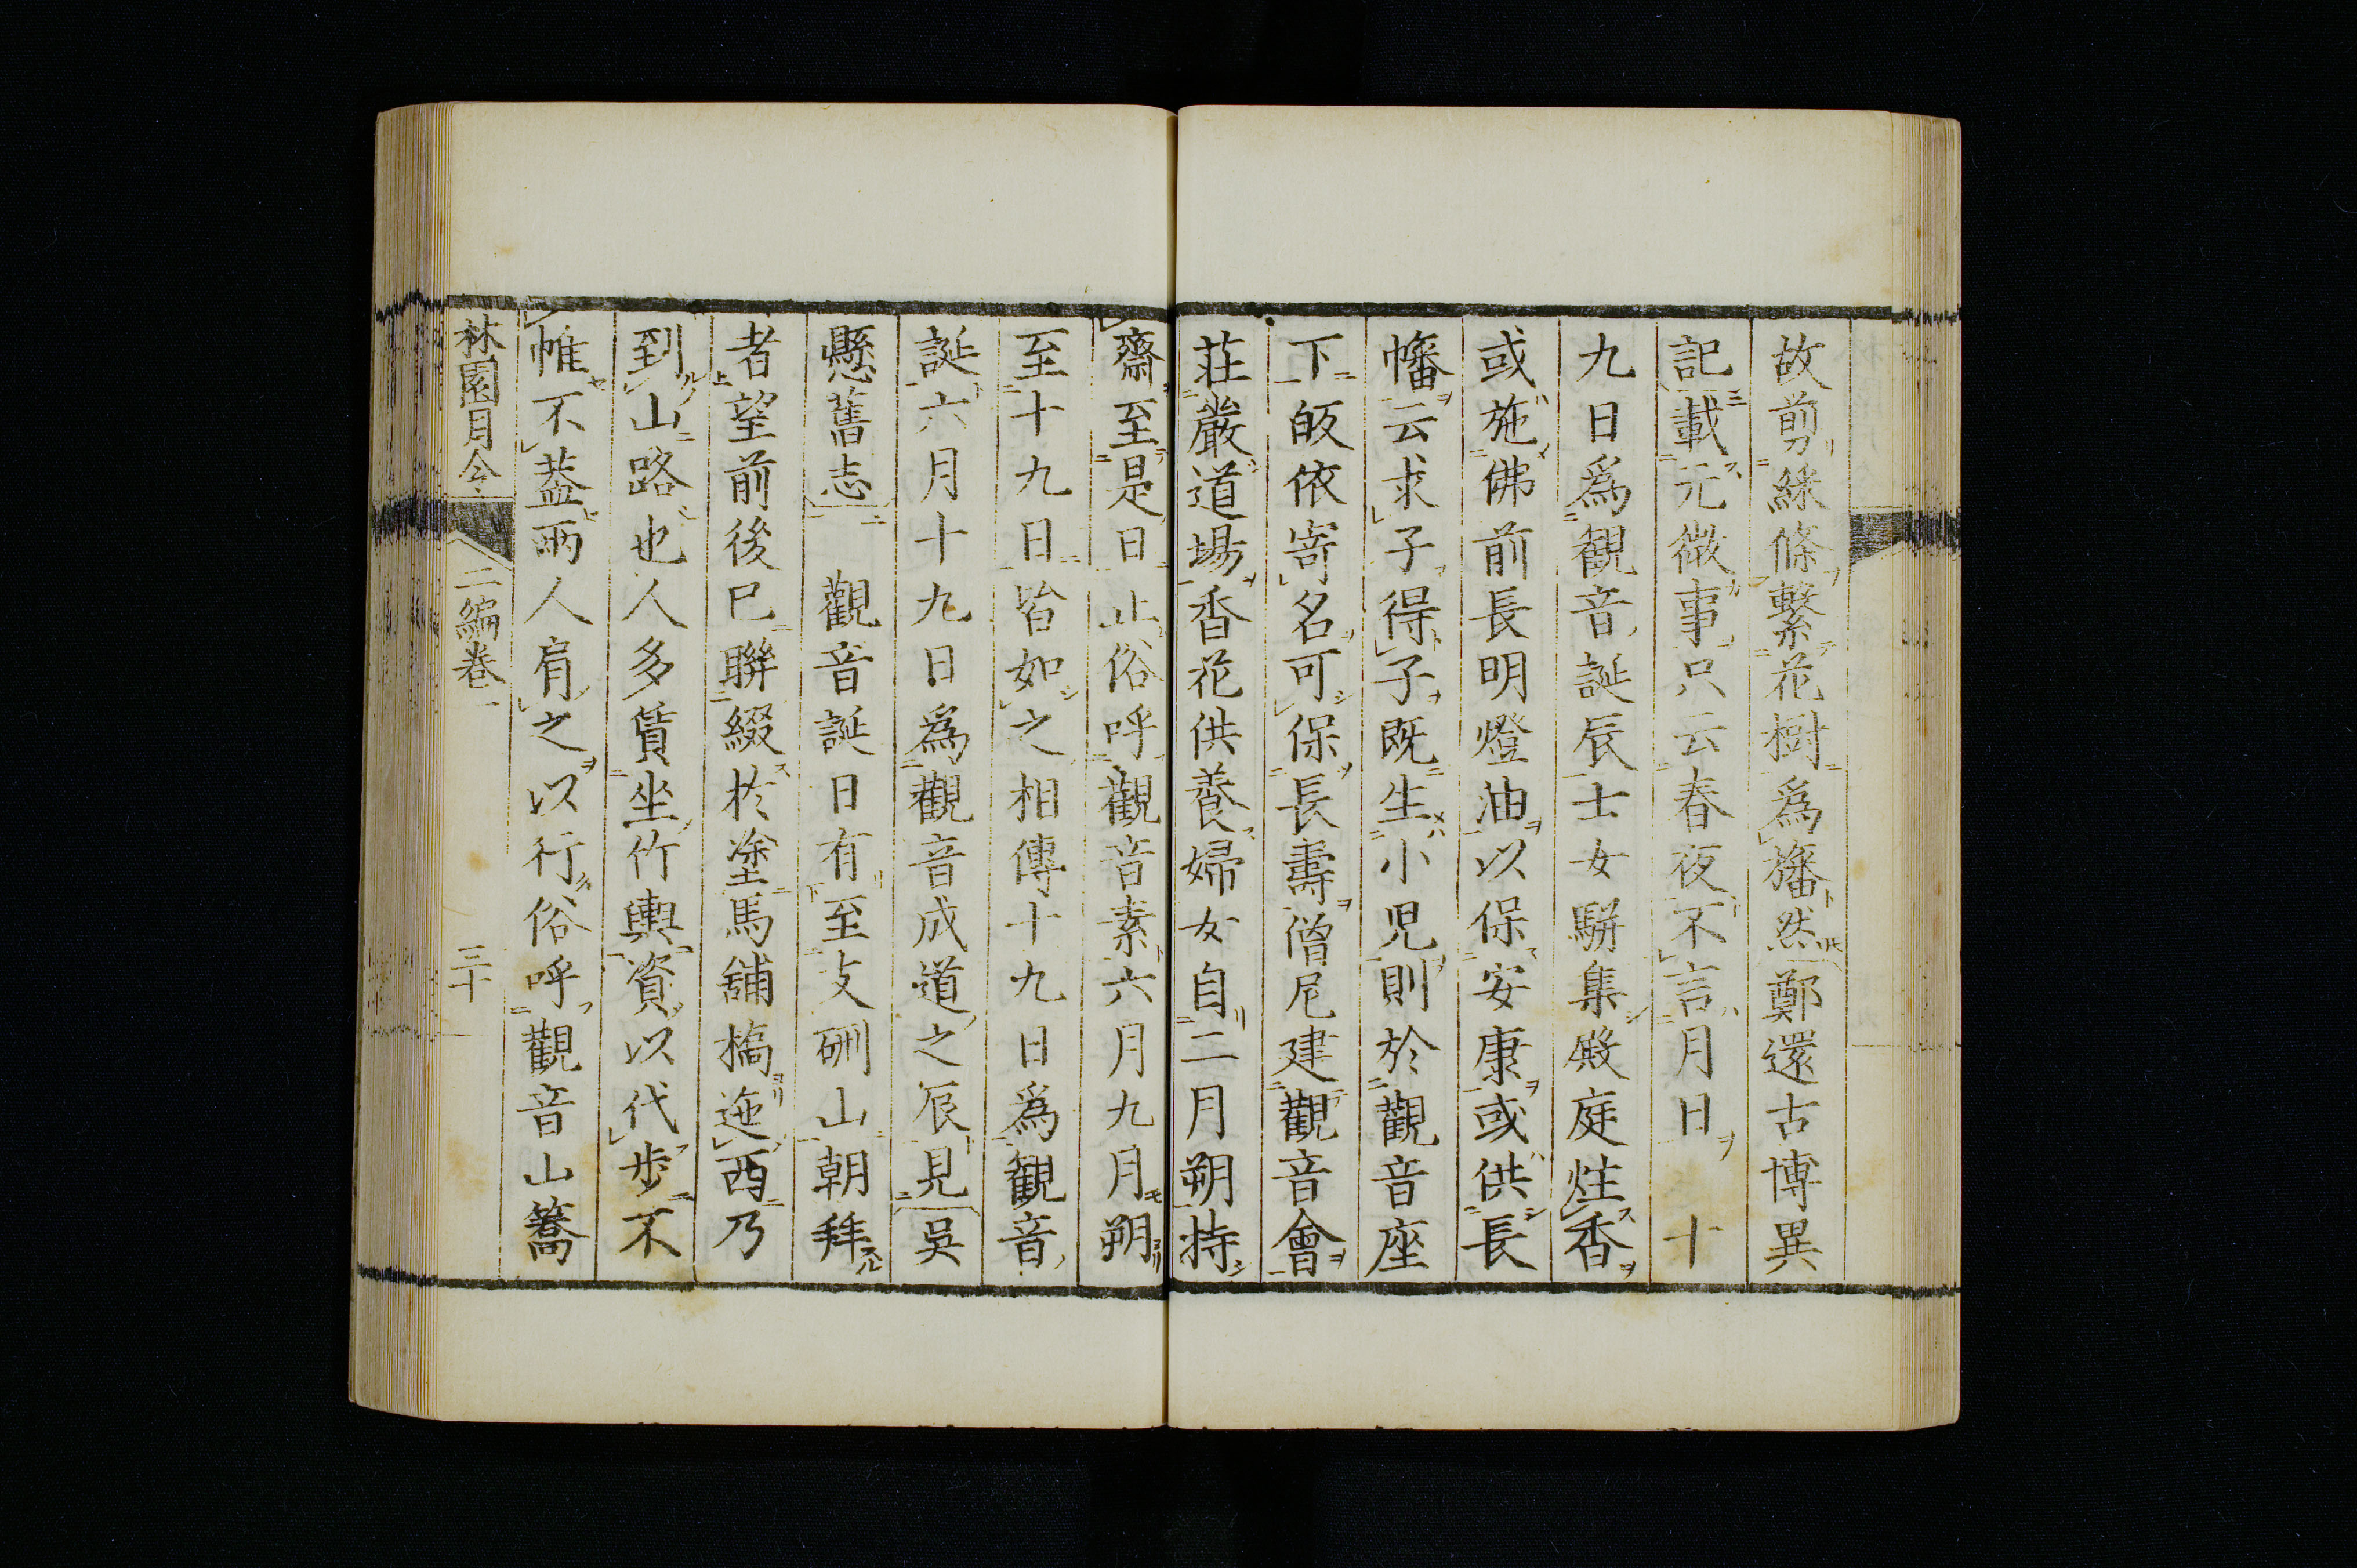 故剪綵條繫花樹爲旛然鄭還古博異
記載元微事只云春夜不言月日　十
九日爲觀音誕辰士女駢集殿庭炷香
或施佛前長明燈油以保安康或供長
幡云求子得子既生小児則於觀音座
下皈依寄名可保長壽僧尼建觀音會
莊嚴道場香花供養婦女自二月朔持
齋至是日止俗呼觀音素六月九月朔
至十九日皆如之相傳十九日爲觀音
誕六月十九日爲觀音成道之辰見吳
縣舊志　觀音誕日有至支硎山朝拜
者望前後已聯綴於塗馬舖橋迤西乃
到山路也人多賃坐竹輿資以代步不
帷不蓋兩人肩之以行俗呼觀音山簥
林園月令　二編卷一　三十